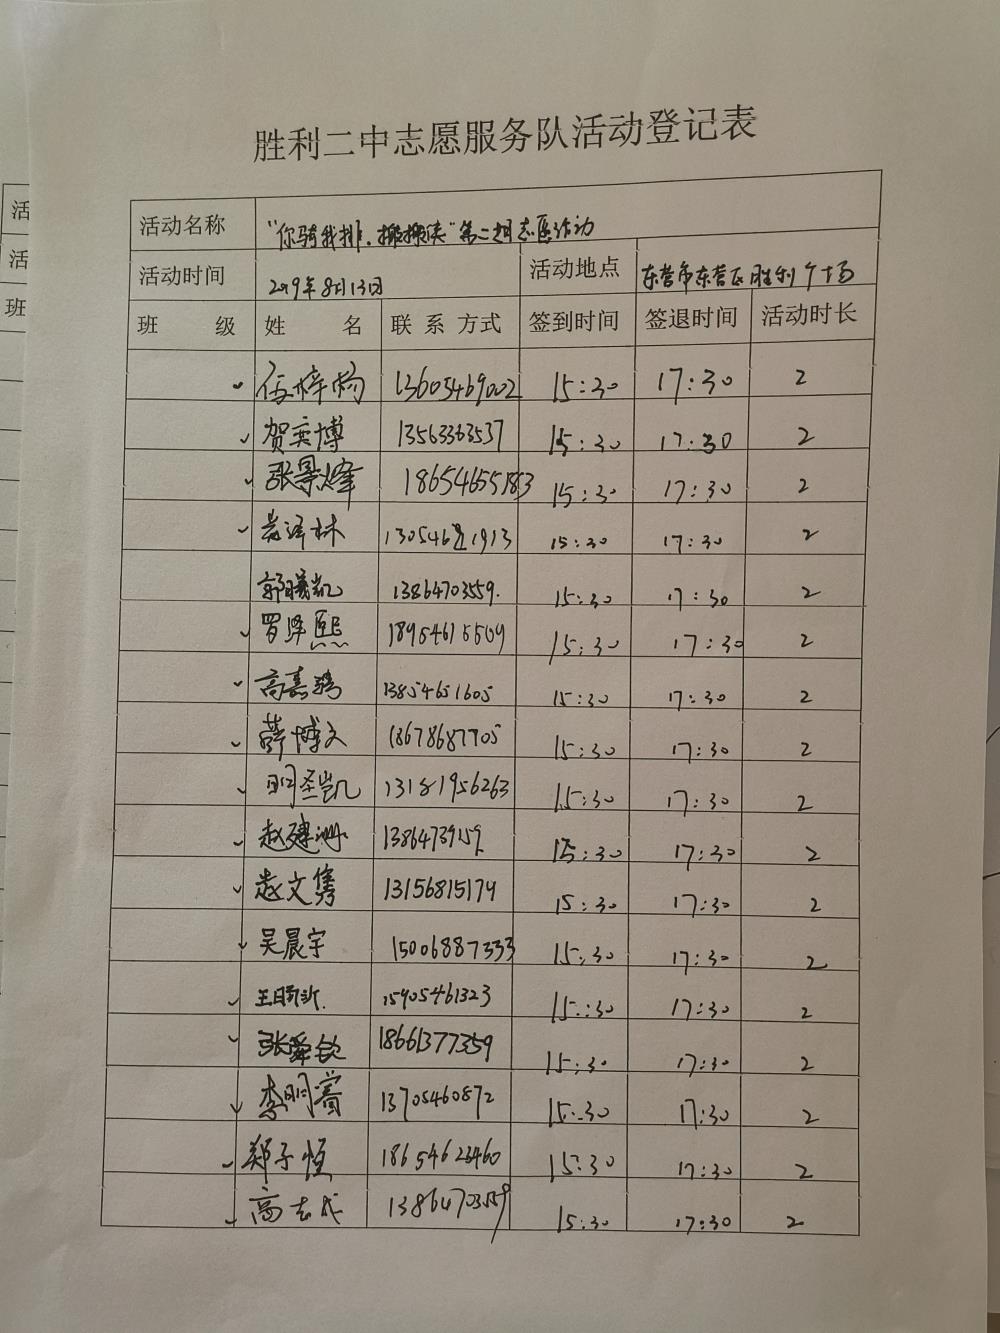 胜利二中志愿服务队活动登记表
活
活动名称 "你骑我排, 挪挪侠"第二期志愿活动
活
活动时间 2019年8月13日 活动地点 东营市东营区胜利广场
班
班 级 姓 名 联系方式 签到时间 签退时间 活动时长
伍梓杨 13605469002 15:30 17:30 2
贺奕博 13563363537 15:30 17:30 2
张景烽 18654655183 15:30 17:30 2
泽林 15:30 17:30 2
郭曦凯 13864703559. 15:30 17:30 2
罗泽熙 18954615509 15:30 17:30 2
高嘉骏 13854651605 15:30 17:30 2
薛博文 18678687705 15:30 17:30 2
明圣凯 13181956263 15:30 17:30 2
赵建洲 15:30 17:30 2
赵文隽 13156815179 15:30 17:30 2
吴晨宇 15006887333 15:30 17:30 2
王 15905461323 15:30 17:30 2
张舜钦 18661377359 15:30 17:30 2
李明 13705460872 15:30 17:30 2
郑子恒 18654623460 15:30 17:30 2
高志成 13864703559 15:30 17:30 2